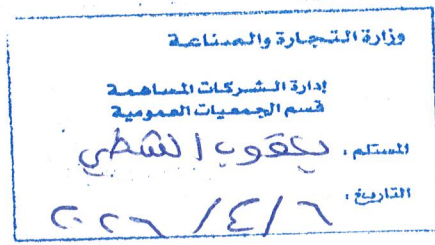 وزارة التجارة والصناعة
إدارة الشركات المساهمة
قسم الجمعيات العمومية
المستلم : يعقوب الشطي
التاريخ : ٢٠٢٦/٤/٦